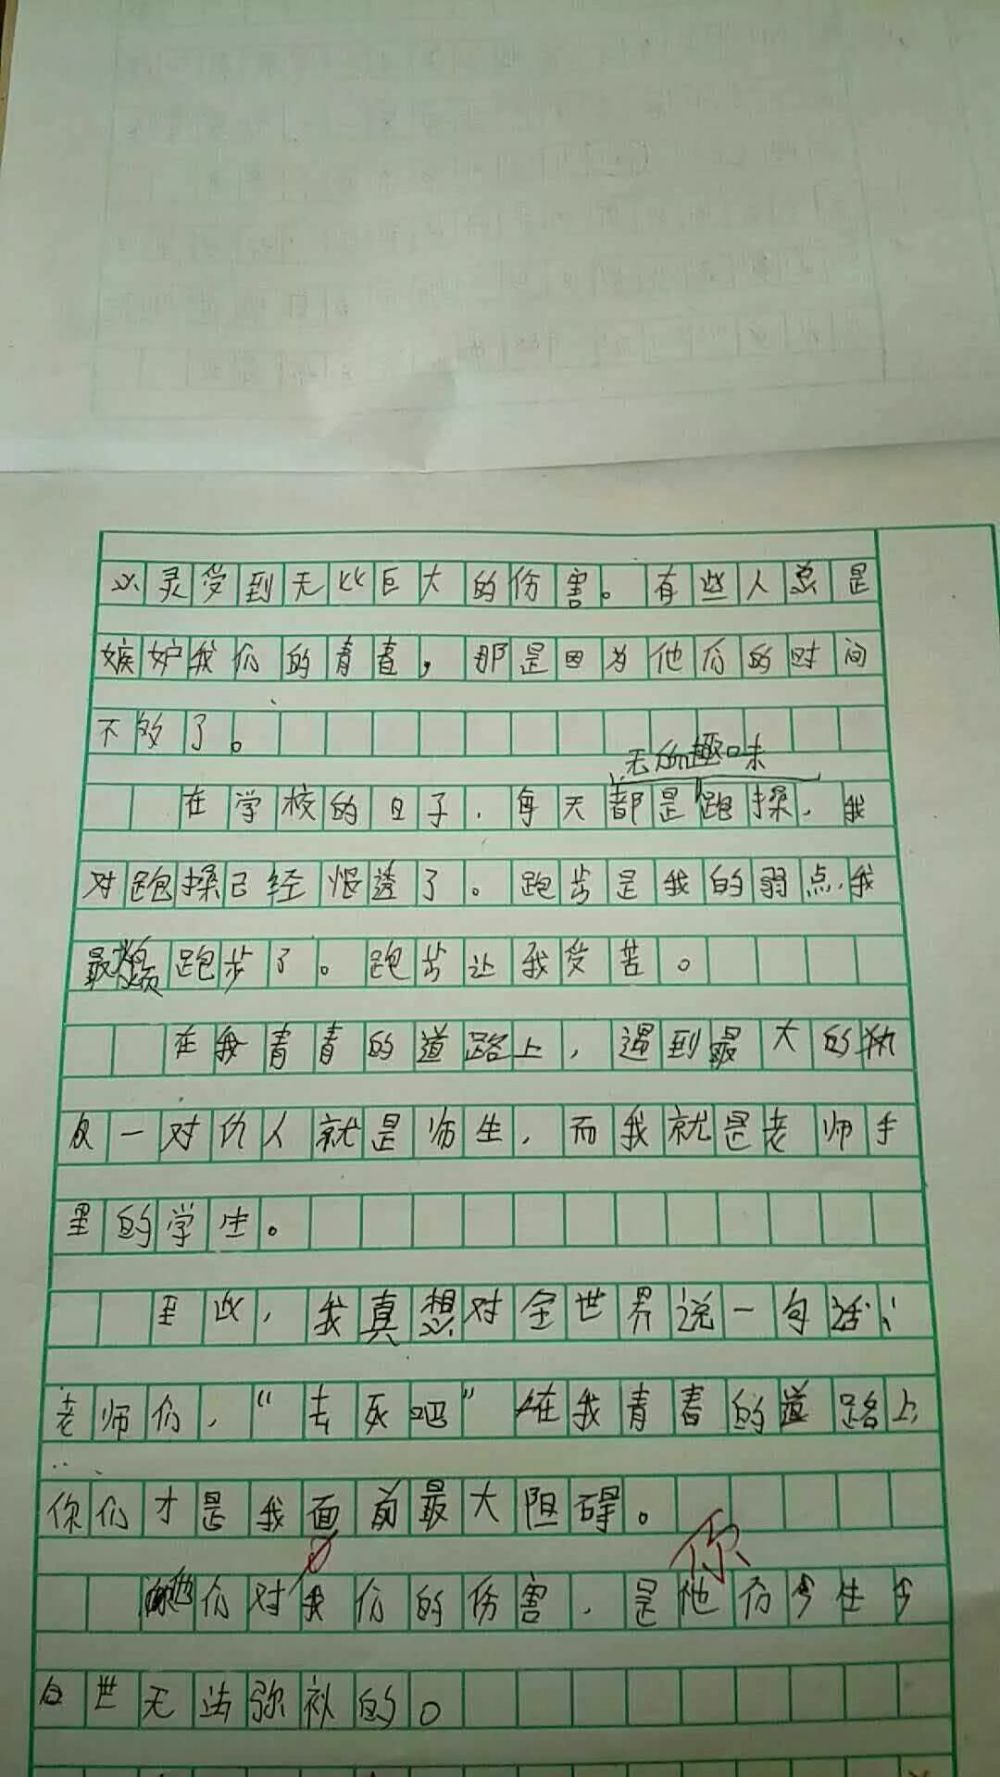 心灵受到无比巨大的伤害。有些人总是
嫉妒我们的青春，那是因为他们的时间
不多了。
无所趣味
在学校的日子，每天都是跑操，我
对跑操已经恨透了。跑步是我的弱点，我
最烦跑步了。跑步让我受苦。
在我青春的道路上，遇到最大的
一对仇人就是师生，而我就是老师手
里的学生。
至此，我真想对全世界说一句话：
老师们，“去死吧”在我青春的道路上
你们才是我面前最大阻碍。
你
他们对我们的伤害，是他们今生今
世无法弥补的。